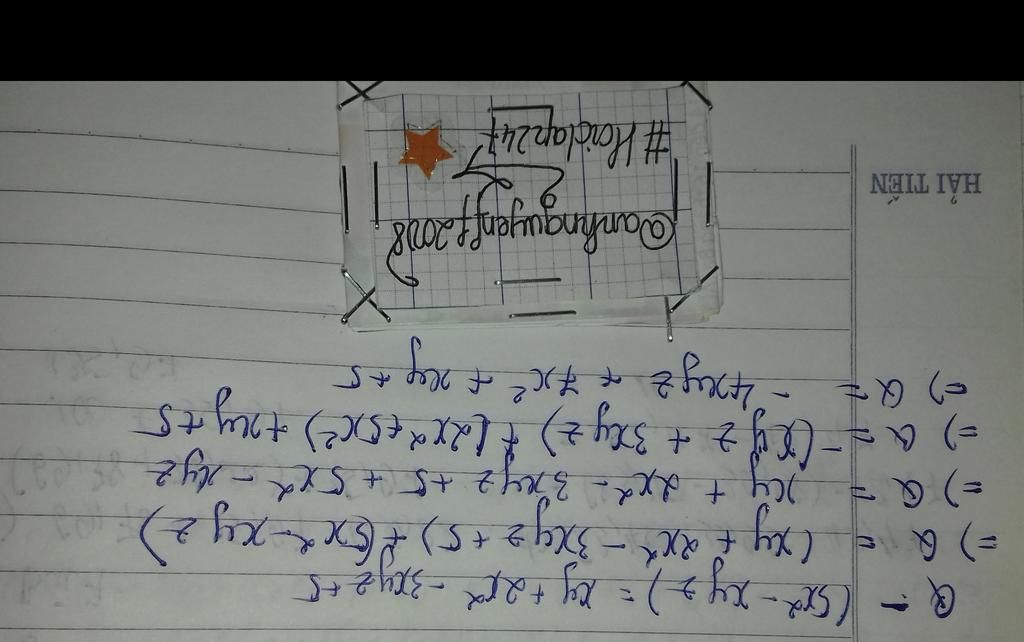 Q - (5x² - xyz) = xy + 2x² - 3xyz + 5
=) Q = (xy + 2x² - 3xyz + 5) + (5x² - xyz)
=) Q = xy + 2x² - 3xyz + 5 + 5x² - xyz
=) Q = -(xyz + 3xyz) + (2x² + 5x²) + xy + 5
=) Q = - 4xyz + 7x² + xy + 5
@anhnguyenff2008
#Hoidap247
HẢI TIẾN